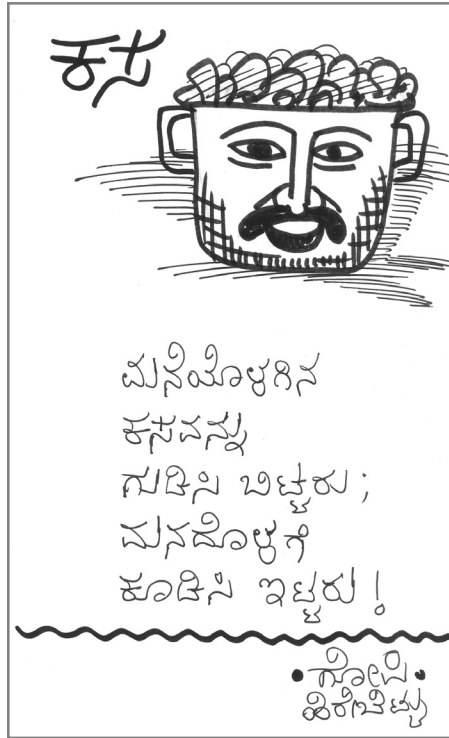 ಕಸ
ಮನೆಯೊಳಗಿನ
ಕಸವನ್ನು
ಗುಡಿಸಿ ಬಿಟ್ಟರು;
ಮನದೊಳಗೆ
ಕೂಡಿಸಿ ಇಟ್ಟರು!
• ಗೋಪಿ •
ಹಿರೇಬೆಟ್ಟು